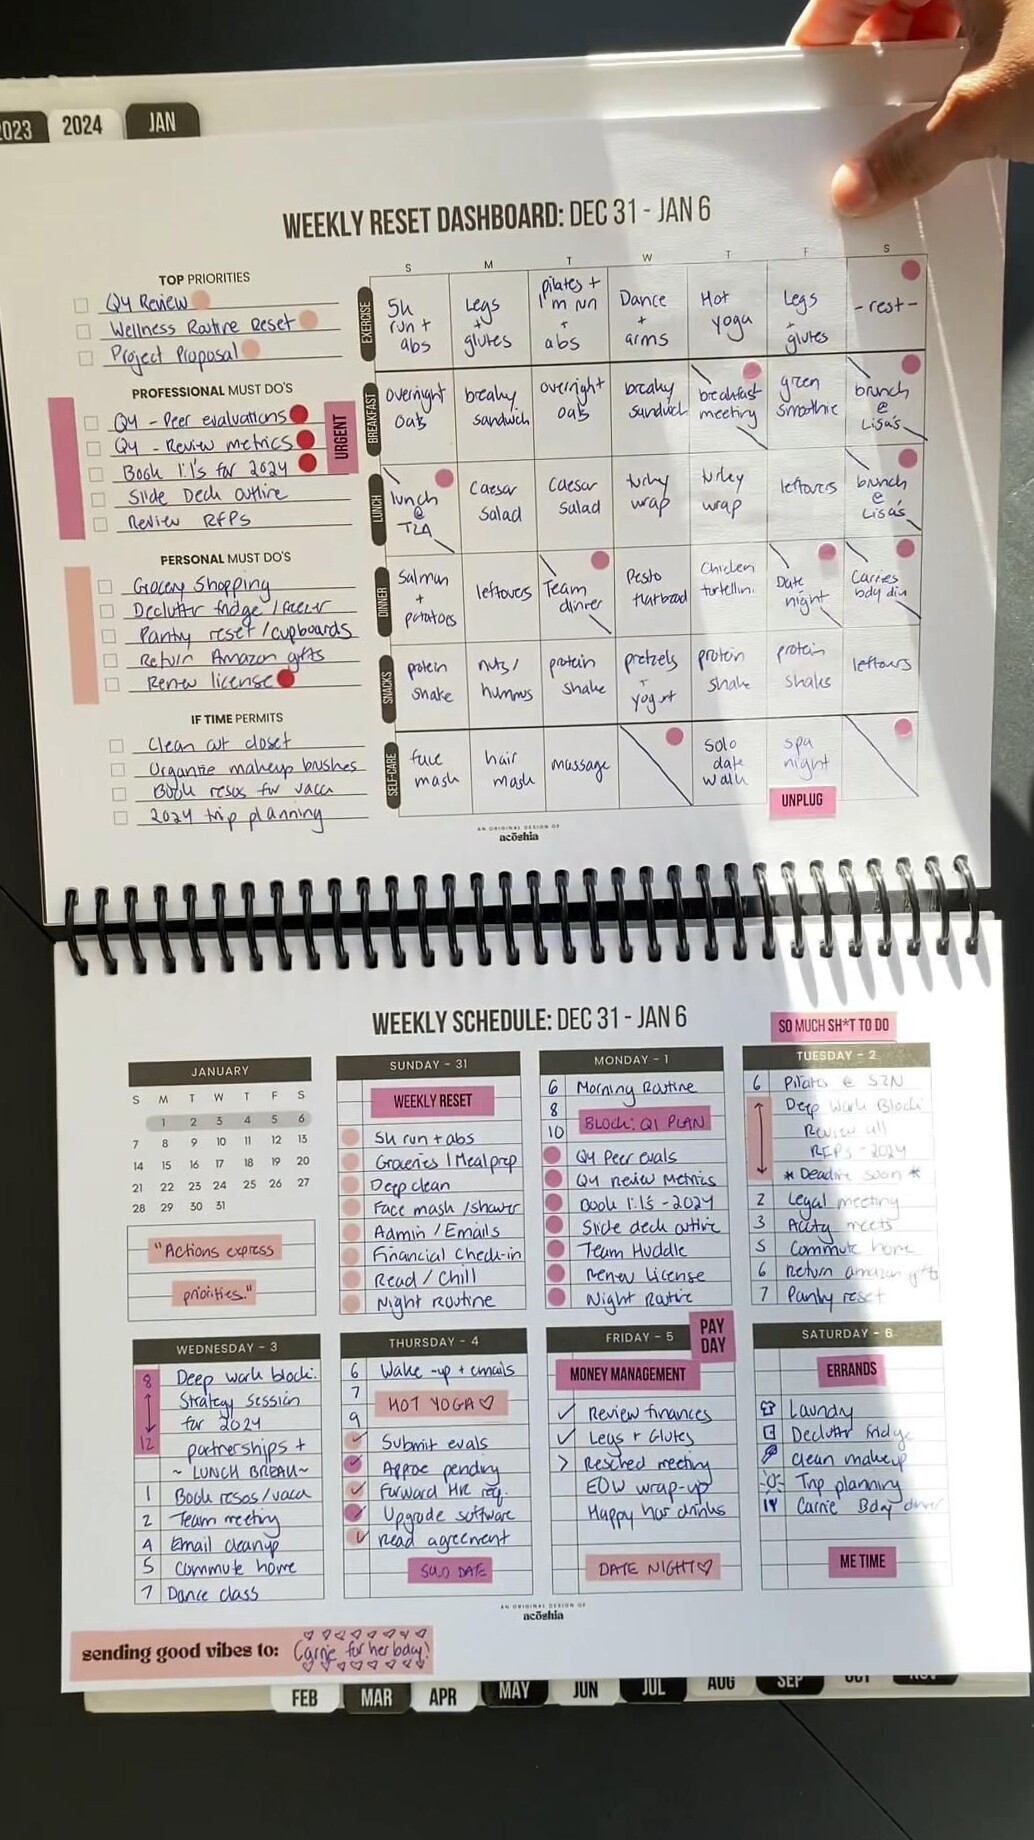 2023
2024
JAN
WEEKLY RESET DASHBOARD: DEC 31 - JAN 6
TOP PRIORITIES
Q4 Review
Wellness Routine Reset
Project Proposal
PROFESSIONAL MUST DO'S
Q4 - Peer evaluations
Q4 - Review metrics
Book 1:1's for 2024
Slide Deck outline
Review RFPS
URGENT
PERSONAL MUST DO'S
Grocery Shopping
Declutter fridge / freezer
Pantry reset / cupboards
Return Amazon gifts
Renew license
IF TIME PERMITS
Clean out closet
Organize makeup brushes
Book resos for vaca
2024 trip planning
S M T W T F S
EXERCISE
5k run + abs
Legs + glutes
pilates + 1'm run + abs
Dance + arms
Hot yoga
Legs + glutes
- rest -
BREAKFAST
overnight oats
breaky sandwich
overnight oats
breaky sandwich
breakfast meeting
green smoothie
brunch @ Lisa's
LUNCH
lunch @
Caesar salad
Caesar salad
turkey wrap
turkey wrap
leftovers
brunch @ Lisa's
DINNER
Salmon + potatoes
leftovers
Team dinner
Pesto flatbread
Chicken tortellini
Date night
Carries bday din
SNACKS
protein shake
nuts / hummus
protein shake
pretzels + yogurt
protein shake
protein shake
leftovers
SELF-CARE
face mask
hair mask
massage
solo date walk
spa night
UNPLUG
AN ORIGINAL DESIGN OF
acōshia
WEEKLY SCHEDULE: DEC 31 - JAN 6
SO MUCH SH*T TO DO
JANUARY
S M T W T F S
1 2 3 4 5 6
7 8 9 10 11 12 13
14 15 16 17 18 19 20
21 22 23 24 25 26 27
28 29 30 31
"Actions express
priorities."
SUNDAY - 31
WEEKLY RESET
5k run + abs
Groceries / Mealprep
Deep clean
Face mask / shower
Admin / Emails
Financial check-in
Read / Chill
Night Routine
MONDAY - 1
6 Morning Routine
8
10 BLOCK: Q1 PLAN
Q4 Peer evals
Q4 Review Metrics
Book 1:1's - 2024
Slide deck outline
Team Huddle
Renew License
Night Routine
TUESDAY - 2
6 Pilates @ SZN
Deep Work Block:
Review all
RFPs - 2024
* Deadline soon *
2 Legal meeting
3 meets
5 Commute home
6 Return amazon gifts
7 Pantry reset
WEDNESDAY - 3
8 Deep work block:
Strategy session
for 2024
12 partnerships +
~ LUNCH BREAK ~
1 Book resos / vaca
2 Team meeting
4 Email cleanup
5 Commute home
7 Dance class
THURSDAY - 4
6 Wake-up + emails
7
HOT YOGA ♡
9
Submit evals
Approve pending
Forward HR req.
Upgrade software
Read agreement
SOLO DATE
FRIDAY - 5
PAY DAY
MONEY MANAGEMENT
✓ Review finances
✓ Legs + Glutes
> Resched meeting
EOW wrap-up
Happy hour drinks
DATE NIGHT ♡
SATURDAY - 6
ERRANDS
Laundry
Declutter fridge
Clean makeup
Trip planning
Carrie Bday dinner
ME TIME
AN ORIGINAL DESIGN OF
acōshia
sending good vibes to: Carrie for her bday!
FEB MAR APR MAY JUN JUL AUG SEP OCT NOV